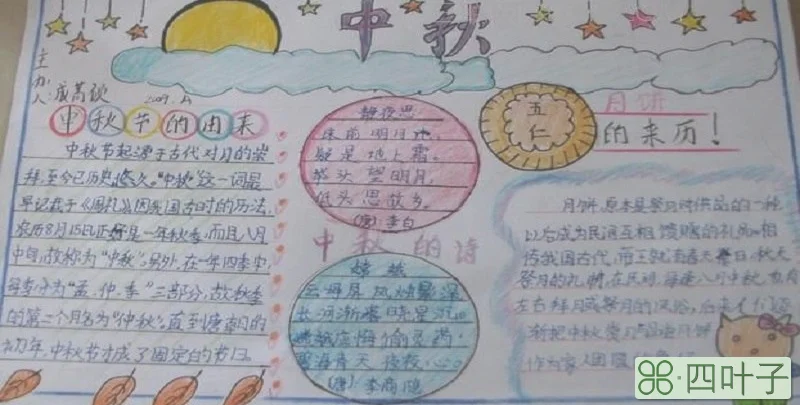 中秋
主办人:
中秋节的由来
中秋节起源于古代对月的崇
拜,至今已历史悠久。“中秋”这一词最
早记载于《周礼》因我国古时的历法,
农历8月15日正好是一年秋季,而且八月
中旬,故称为“中秋”。另外,在一年四季中
每季分为“孟、仲、季”三部分,故秋季
的第二个月名为“仲秋”。直到唐朝的
初年,中秋节才成了固定的节日。
静夜思
床前明月光,
疑是地上霜。
举头望明月,
低头思故乡。
(唐)李白
中秋的诗
嫦娥
云母屏风烛影深
长河渐落晓星沉
嫦娥应悔偷灵药
碧海青天夜夜心
(唐)李商隐
五仁
月饼
的来历!
月饼,原本是祭月时供品的一种
以后成为民间互相馈赠的礼品。相
传我国古代,帝王就有春天祭日,秋天
祭月的礼制,在民间,每逢八月中秋,也有
左右拜月或祭月的风俗,后来人们逐
渐把中秋赏月与品尝月饼
作为家人团圆
四叶子